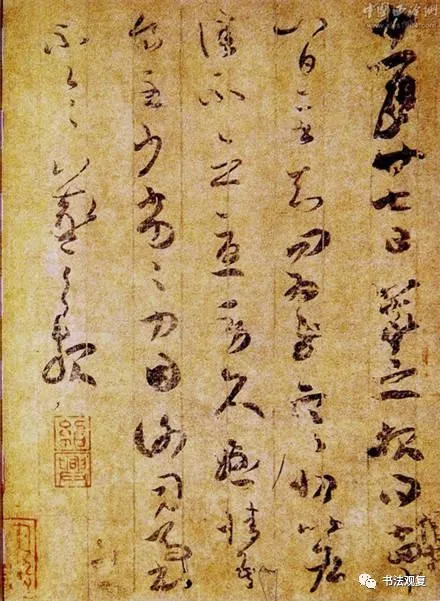 十一月廿七日羲之報得十四十
八日二書知問爲慰寒切比各
佳不念憂勞久懸情吾
食至少劣劣力因謝司馬書
不一一羲之報
紹興
中国西泠网
书法观复